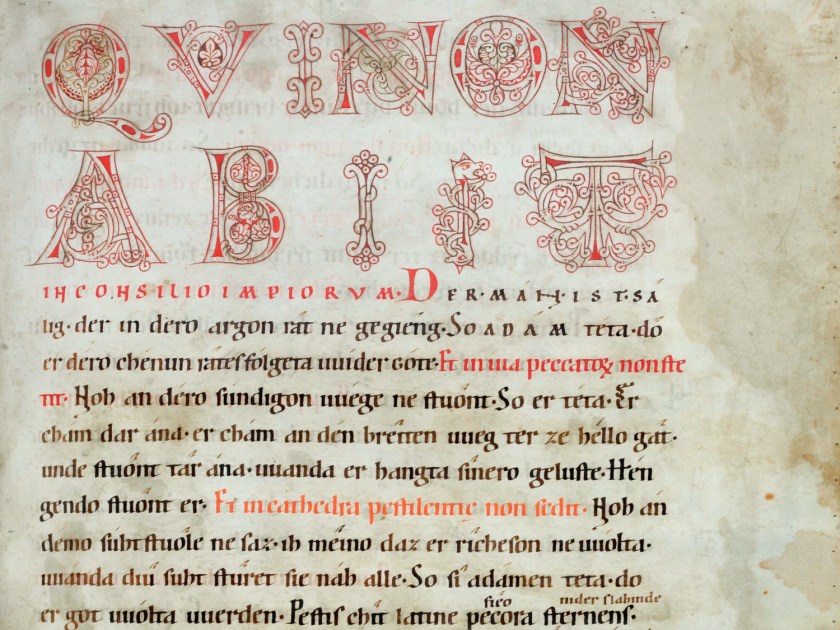 QVI NON
ABIIT
IN CONSILIO IMPIORVM· DER·MAN·IST·SA
lig· der in dero argon rât ne gegieng· So ADAM teta· dô
er dero chenun râtes folgeta uuider gote· Et in uia peccatoꝝ non ste
tit· Noh an dero sundigon uuege ne stuônt· So er teta· Er
chám dar ána· er chám an den breiten uueg ter ze hello gât·
unde stuônt târ ána· uuanda er hangta sînero geluste· Hen
gendo stuônt er· Et in cathedra pestilentię non sedit· Noh an
demo súhtstuole ne saz· ih méino daz er rîcheson ne uuolta·
uuanda diu suht stûret sie nâh alle· So sî adamen teta· dô
siêo nider slahinde
er got uuolta uuerden· Pestis chît latine pecora sternens·